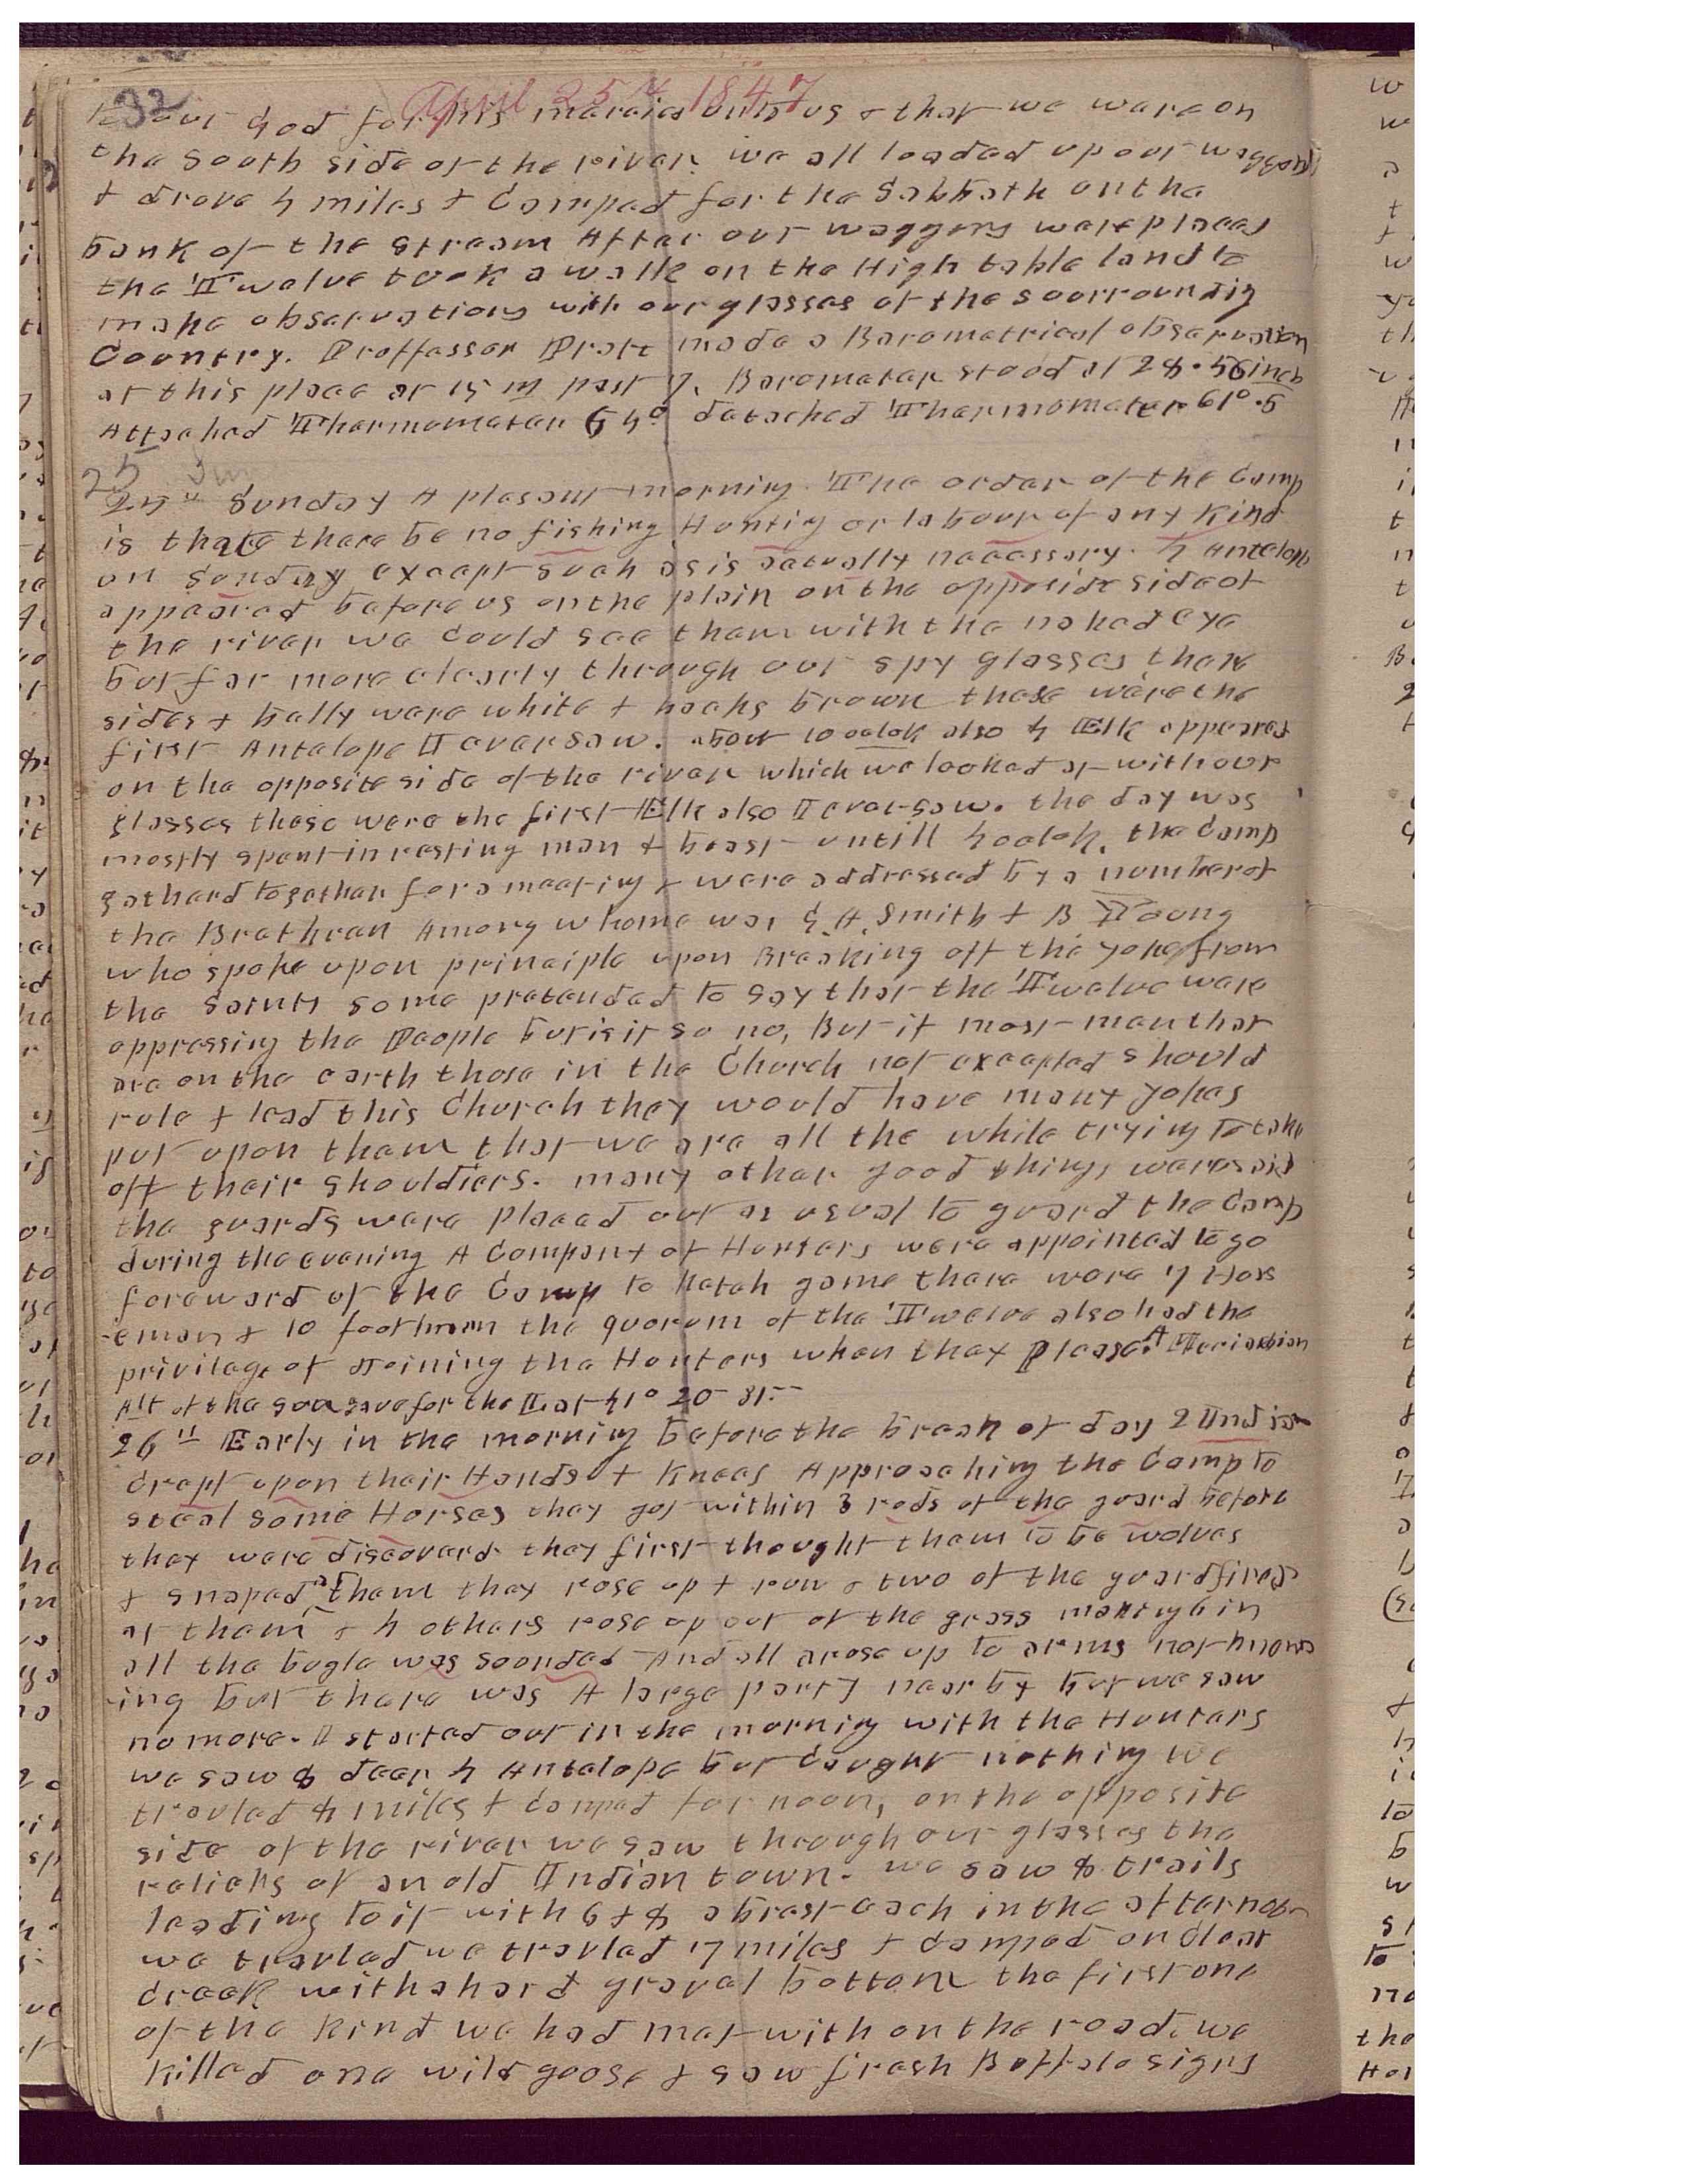 32
April 25th 1847
to our God for his mercies unto us & that we ware on
the South side of the river. we all loaded up our waggons
& drove 4 miles & Camped for the Sabbath on the
bank of the stream After our waggons ware placed
the Twelve took a walk on the High table land to
make observations with our glasses of the sourrounding
Country. Proffessor Pratt made a Barometrical observation
at this place at 15 m past 7. Barometer stood at 28.56 inch
Attached Thermometer 64° detached Thermometer 61°.5
25 Sun
25" Sunday A plesant morning. The order of the Camp
is that there be no fishing Hunting or labour of any Kind
on Sunday except such as is actually necessary. 4 Antelope
appeared before us on the plain on the opposite side of
the river we Could see them with the naked eye
but far more clearly through our spy glasses there
sides & belly ware white & backs brown these ware the
first Antelope I ever saw. about 10 oclok also 4 Elk appeared
on the opposite side of the river which we looked at with our
glasses these were the first Elk also I ever saw. the day was
mostly spent in resting man & beast untill 4 oclok. the Camp
gatherd together for a meeting & were addressed by a number of
the Brethren Among whome was G. A. Smith & B Young
who spoke upon principle upon Breaking off the yoke from
the saints some pretended to say that the Twelve ware
oppressing the People but is it so no, But if most men that
are on the earth those in the Church not excepted should
rule & lead this Church they would have many yokes
put upon them that we are all the while trying to take
off their shouldiers. many other good things ware said
the guards were placed out as usual to guard the Camp
during the evening A Company of Hunters were appointed to go
foreward of the Camp to ketch game there were 7 Hors
-emen & 10 footmen the quorum of the Twelve also had the
privilege of Joining the Hunters when they please. A Meridian
Alt of the sun gave for the Lat 41° 20- 31--
26" Early in the morning before the break of day 2 Indians
crept upon their Hands & Knees Approaching the Camp to
steal some Horses they got within 3 rods of the guard before
they were discoverd they first thought them to be wolves
& snaped at them they rose up & run & two of the guard fired
at them & 4 others rose up out of the grass making 6 in
all the bugle was sounded And all arose up to arms not know
-ing but there was A large party near by but we saw
no more. I started out in the morning with the Hunters
we saw 8 deer 4 Antelope but Caught nothing we
travled 8 miles & Camped for noon, on the opposite
side of the river we saw through our glasses the
relicks of an old Indian town. we saw 8 trails
leading to it with 6 & 8 abrest each in the afternoon
we travled we travled 7 miles & Camped on Clear
Creek with a hard graval bottom the first one
of the kind we had met with on the road. we
killed one wild goose & saw fresh Buffalo signs